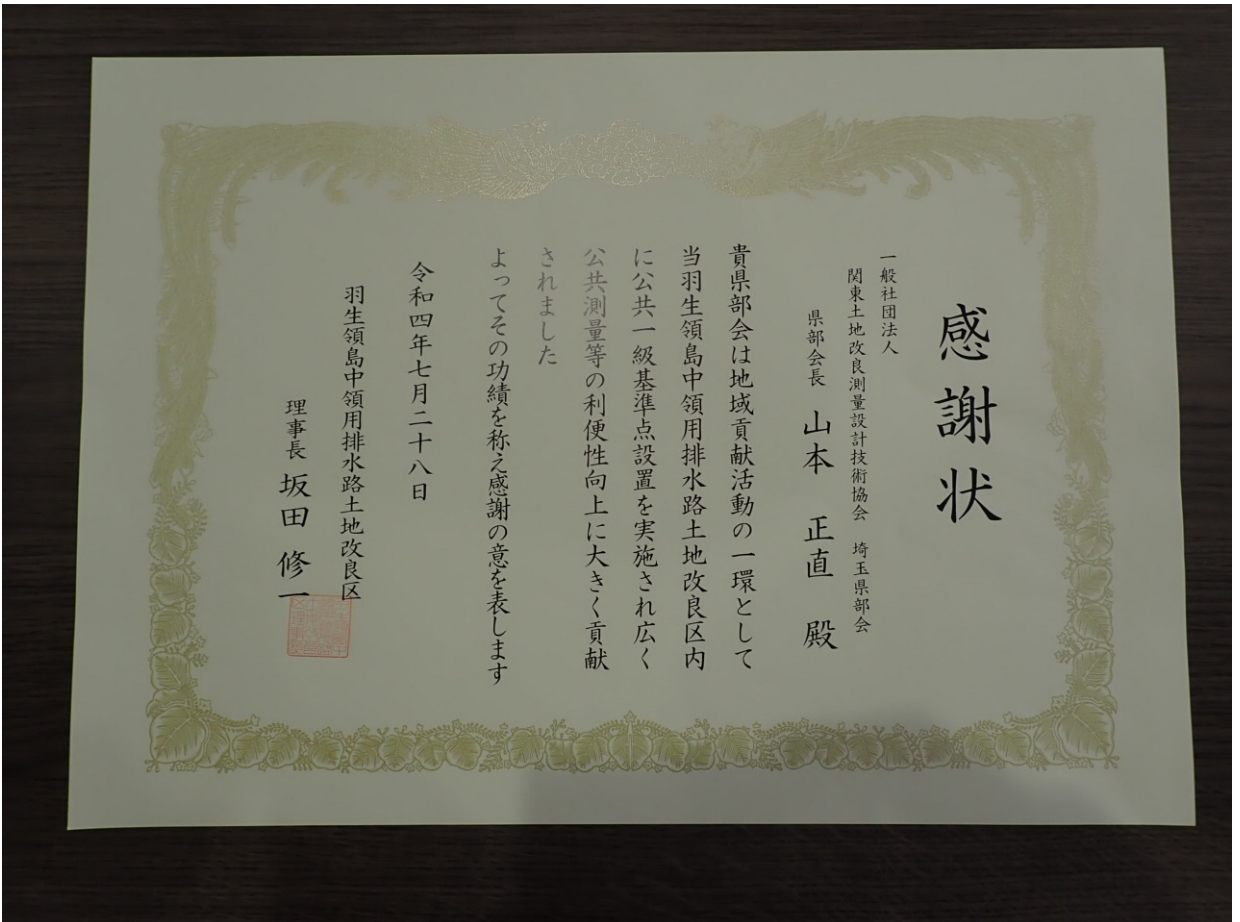 感謝状
一般社団法人
関東土地改良測量設計技術協会 埼玉県部会
県部会長 山本 正直 殿
貴県部会は地域貢献活動の一環として
当羽生領島中領用排水路土地改良区内
に公共一級基準点設置を実施され広く
公共測量等の利便性向上に大きく貢献
されました
よってその功績を称え感謝の意を表します
令和四年七月二十八日
羽生領島中領用排水路土地改良区
理事長 坂田 修一